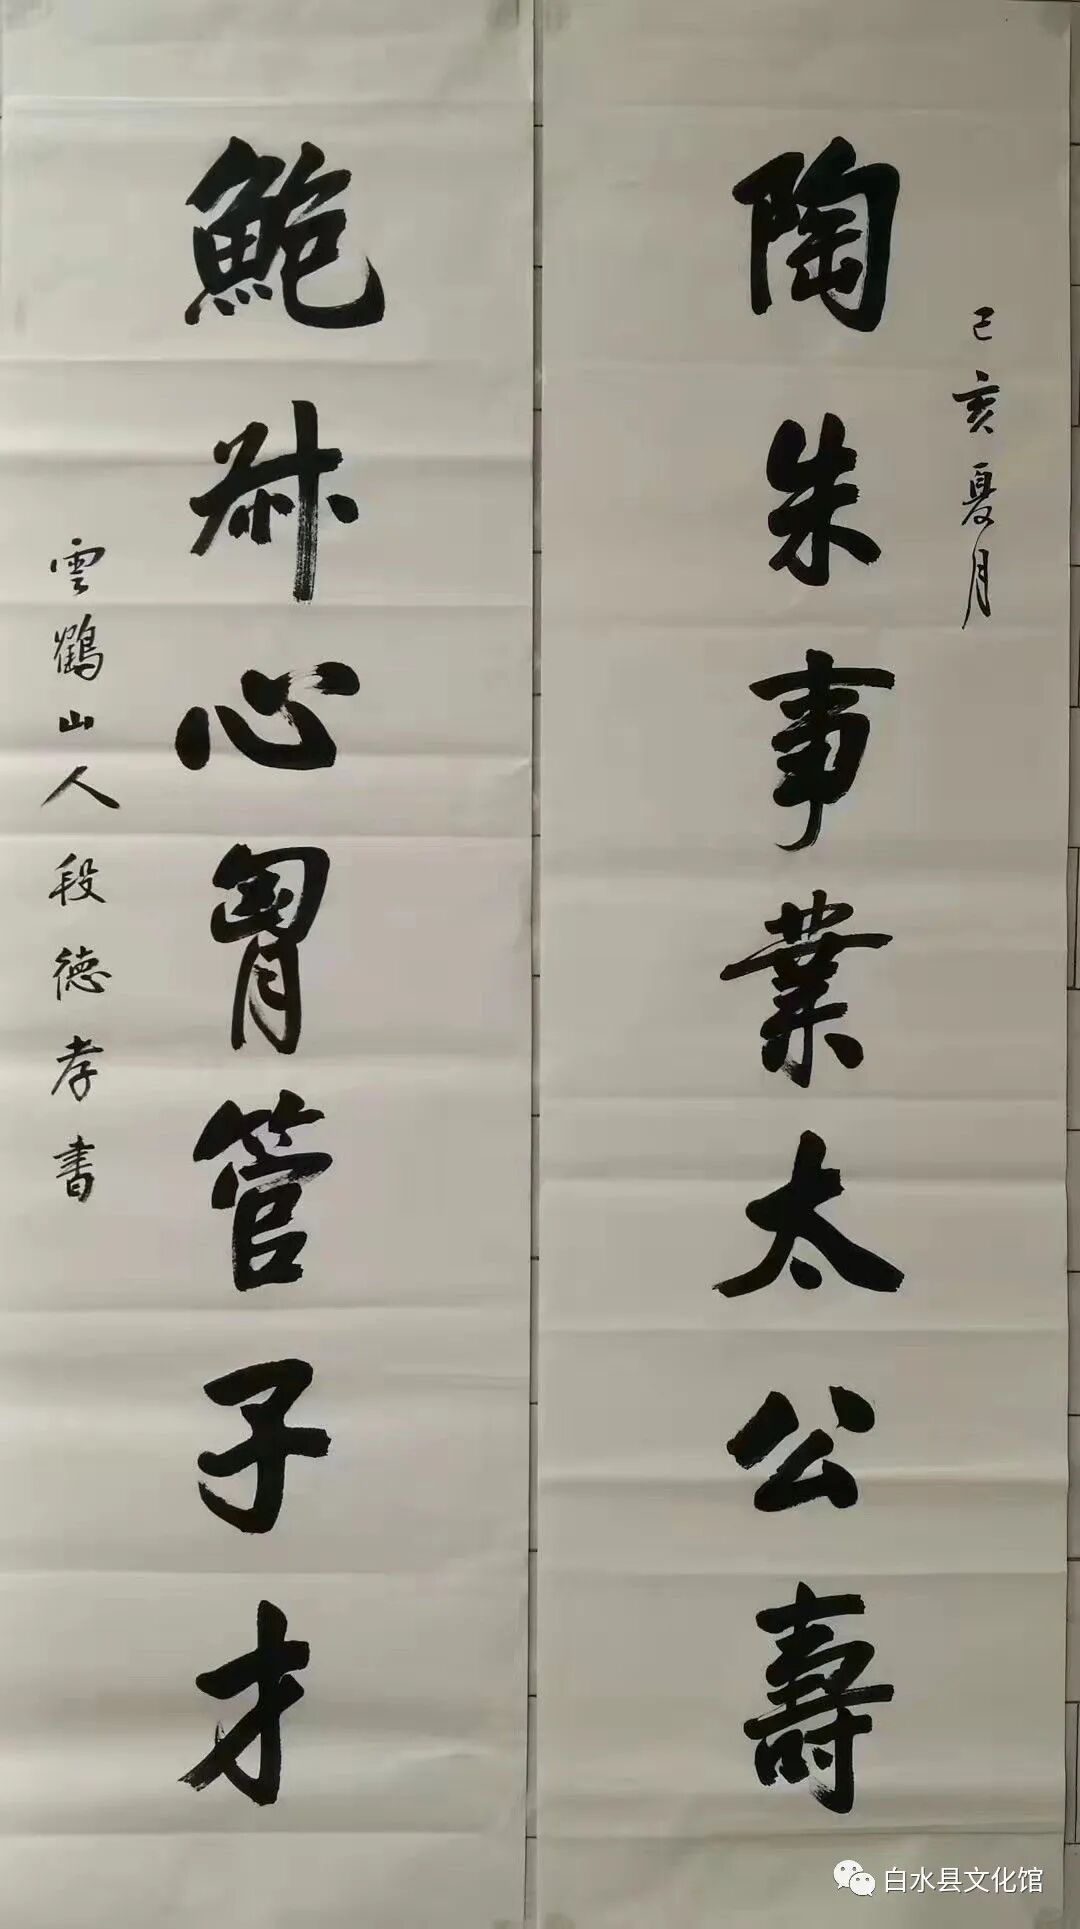 己亥夏月
陶朱事業太公壽
鮑叔心胷管子才
雲鶴山人段德孝書
白水县文化馆